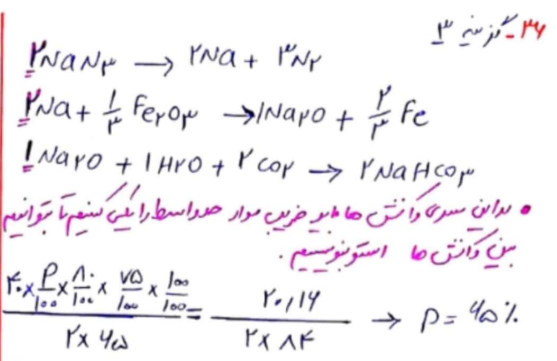 ۳۶- گزینه ۳
۲NaN۳ → ۲Na + ۳N۲
۲Na + ۱/۳ Fe۲O۳ → ۱Na۲O + ۲/۳ Fe
۱Na۲O + ۱H۲O + ۲CO۲ → ۲NaHCO۳
• در این سری واکنش ها باید ضریب مواد حدواسط را یکی کنیم تا بتوانیم
بین واکنش ها استو بنویسیم.
(۴۰ × P/۱۰۰ × ۸۰/۱۰۰ × ۷۵/۱۰۰ × ۱۰۰/۱۰۰)/(۲ × ۶۵) = ۲۰,۱۶/(۲ × ۸۴) → P = ۶۵٪